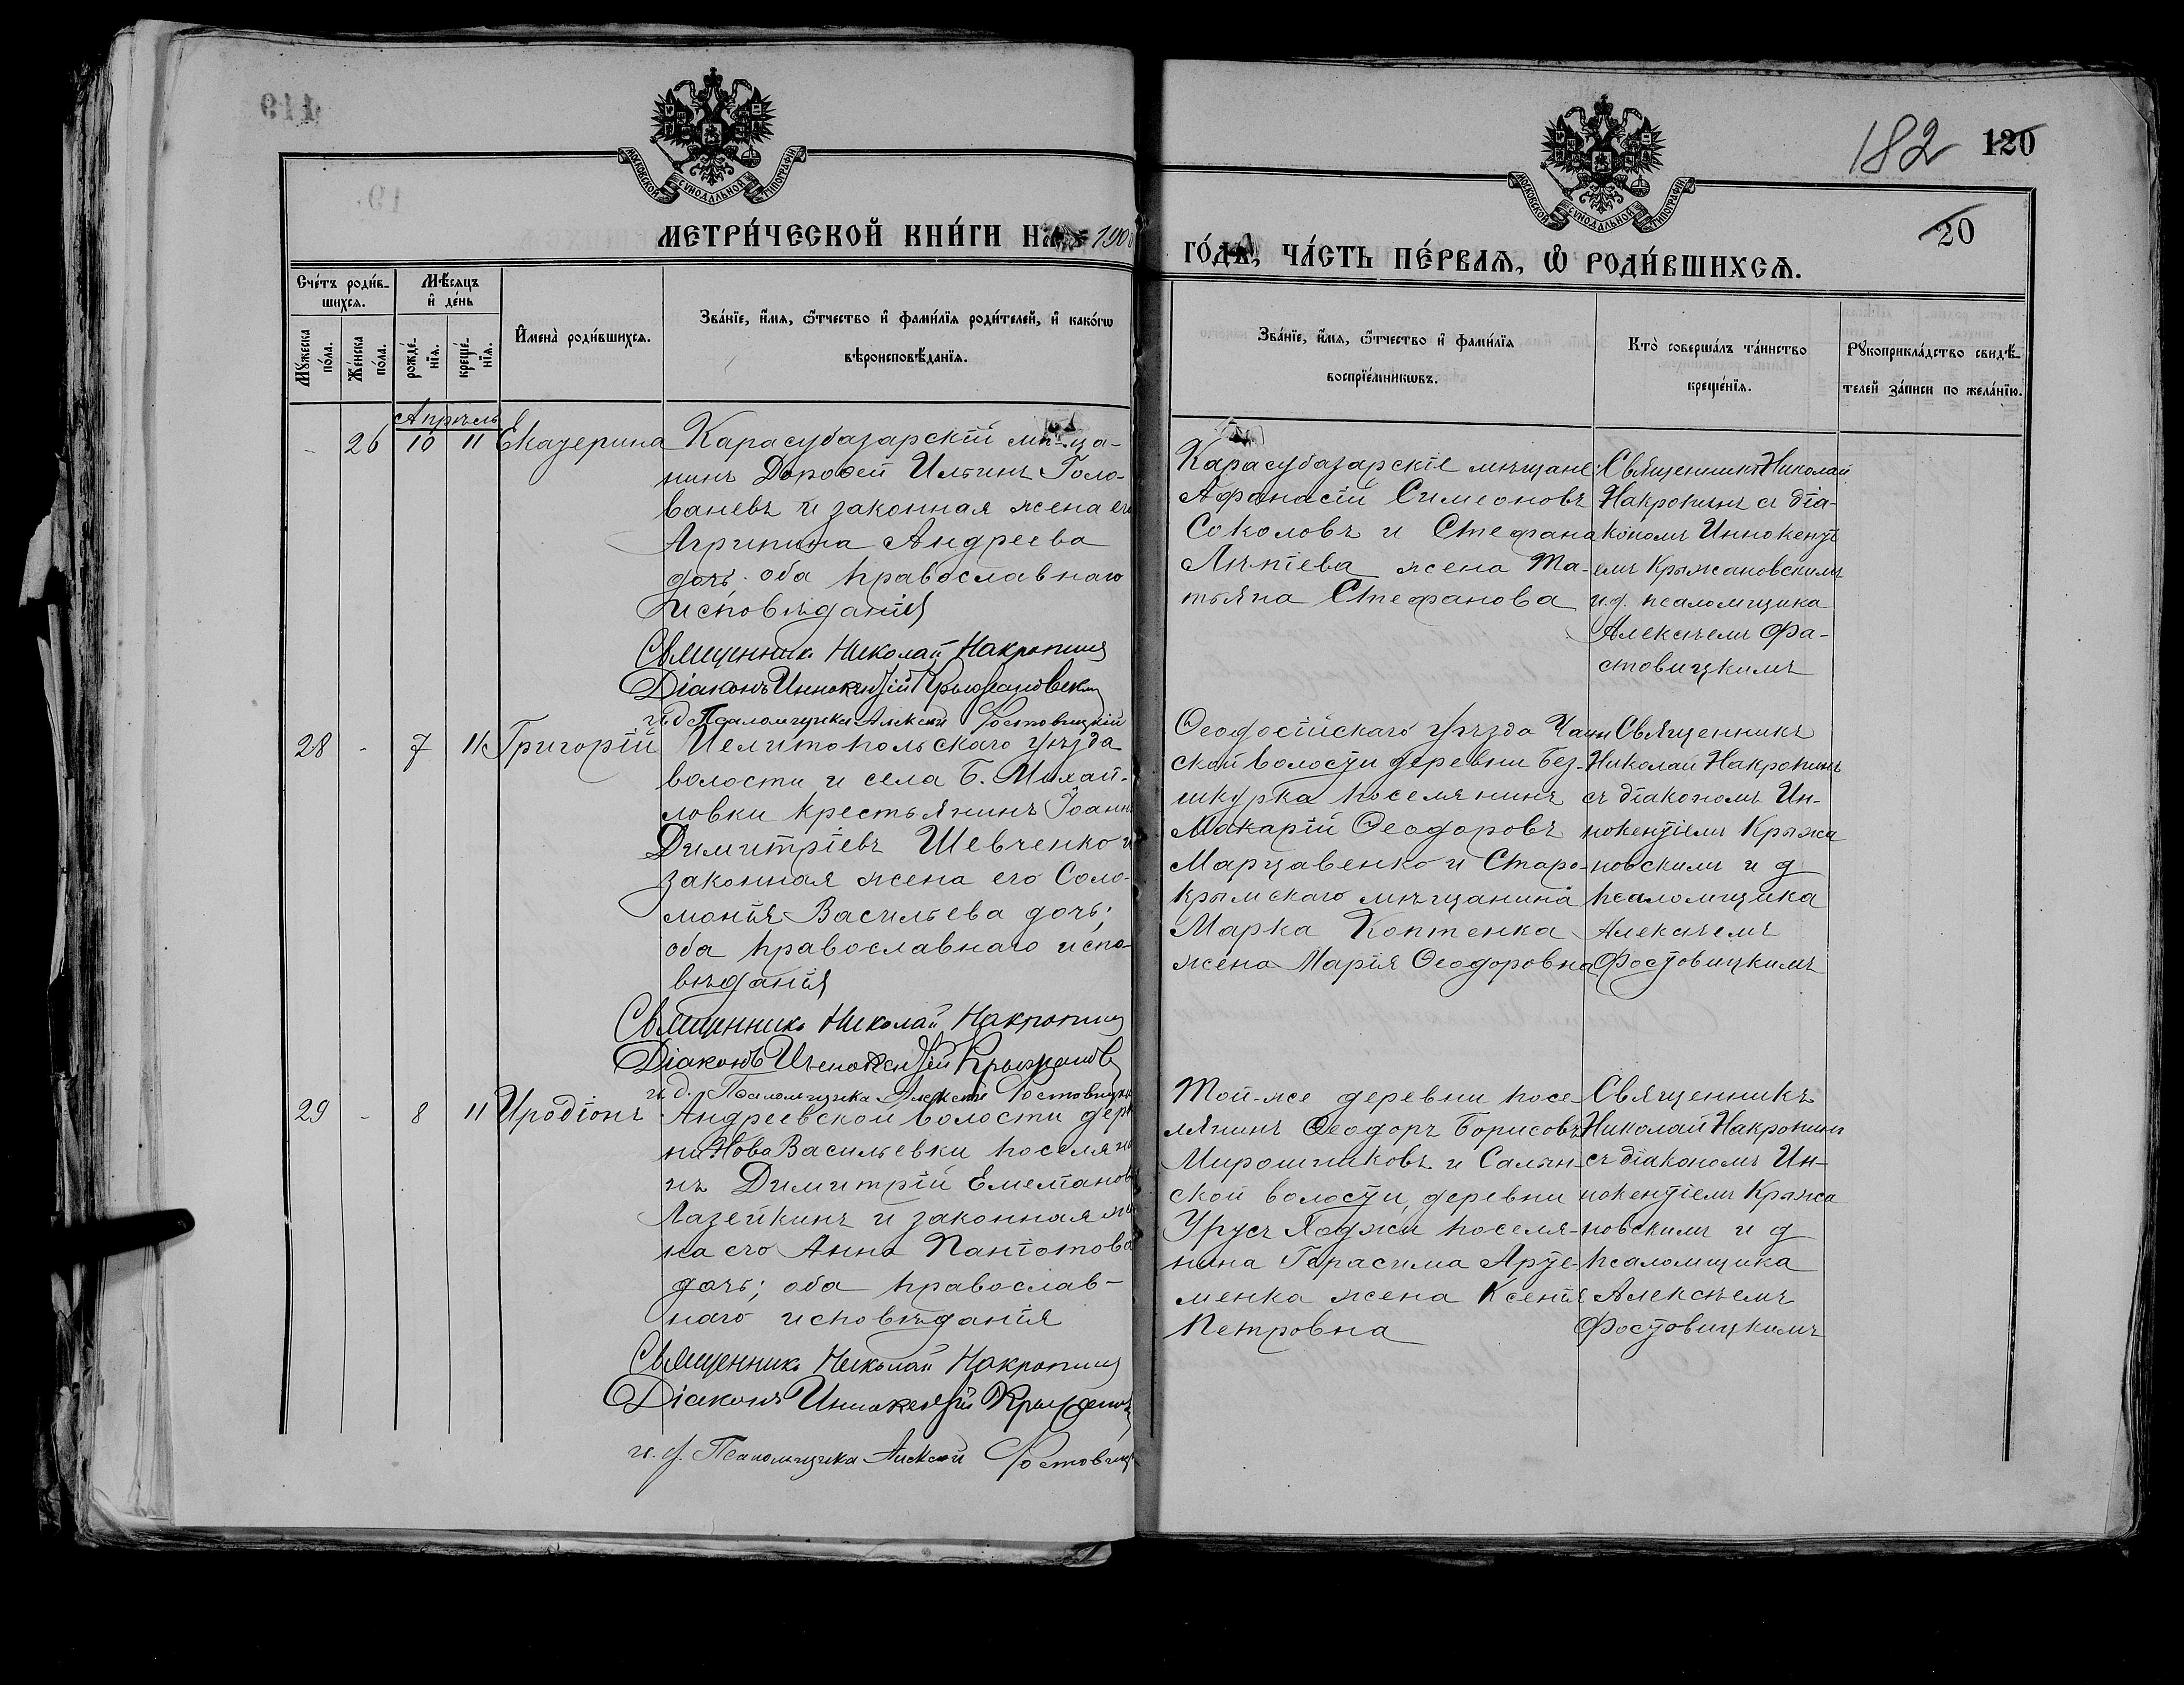 МОСКОВСКОЙ СѴНОДАЛЬНОЙ ТИПОГРАФІИ
МОСКОВСКОЙ СѴНОДАЛЬНОЙ ТИПОГРАФІИ
182 120
20
МЕТРИ́ЧЕСКОЙ КНИ́ГИ НА 190
ГО́ДА, ЧА́СТЬ ПЕ́РВАѦ, Ѡ РОДИ́ВШИХСѦ.
Сче́тъ роди́в-
шихсѧ.
Мѣ́сѧцъ
и де́нь
Мꙋ́жеска
по́ла.
Же́нска
по́ла.
рожде́-
нїѧ.
креще́-
нїѧ.
Имена̀ роди́вшихсѧ.
Зва́нїе, и́мѧ, ѻ́тчество и фами́лїѧ роди́телей, и како́гѡ
вѣроисповѣ́данїѧ.
Зва́нїе, и́мѧ, ѻ́тчество и фами́лїѧ
воспрїе́мникѡвъ.
Кто̀ соверша́лъ та́инство
креще́нїѧ.
Рꙋкоприкла́дство свидѣ́-
телей за́писи по жела́нїю.
Апрѣль
- 26 10 11 Екатерина
Карасубазарскій мѣща-
нинъ Дороѳей Ильинъ Голо-
ваневъ и законная жена его
Агрипина Андреева
дочь; оба православнаго
исповѣданія
Священникъ Николай Накропинъ
Діаконъ Иннокентій Крыжановскій
и. д. Псаломщика Алексѣй Фостовицкій
Карасубазарскіе мѣщане:
Афанасій Симеоновъ
Соколовъ и Стефана
жена Та-
тьяна Стефанова
Священникъ Николай
Накропинъ съ діа-
кономъ Иннокенті-
емъ Крыжановскимъ
и.д. псаломщика
Алексѣемъ Фа-
стовицкимъ
28 - 7 11 Григорій
Мелитопольскаго уѣзда
волости и села Б. Михай-
ловки крестьянинъ Іоаннъ
Димитріевъ Шевченко и
законная жена его Соло-
монія Васильева дочь;
оба православнаго испо-
вѣданія
Священникъ Николай Накропинъ
Діаконъ Иннокентій Крыжанов
и. д. Псаломщика Алексѣй Фостовицкій
Ѳеодосійскаго уѣзда
ской волости деревни Без-
шкурка поселянинъ
Макарій Ѳеодоровъ
Марцавенко и Старо-
крымскаго мѣщанина
Марка Коптенка
жена Марія Ѳеодоровна
Священникъ
Николай Накропинъ
съ діакономъ Ин-
нокентіемъ Крыжа
новскимъ и д
псаломщика
Алексѣемъ
Фостовицкимъ
29 - 8 11 Иродіонъ
Андреевской волости дерев
ни Ново Васильевки поселяни
нъ Димитрій Емеліановъ
Лазейкинъ и законная же
на его Анна
дочь; оба православ-
наго исповѣданія
Священникъ Николай Накропинъ
Діаконъ Иннокентій Крыжанов
и. д. Псаломщика Алексѣй Фостовицк
Той-же деревни посе-
лянинъ Ѳеодоръ Борисовъ
Мирошниковъ и Салын-
ской волости, деревни
Урусъ Ходжи поселя-
нина Герасима Арте-
менка жена Ксенія
Петровна
Священникъ
Николай Накропинъ
съ діакономъ Ин-
нокентіемъ Крыжа
новскимъ и д
псаломщика
Алексѣемъ
Фостовицкимъ